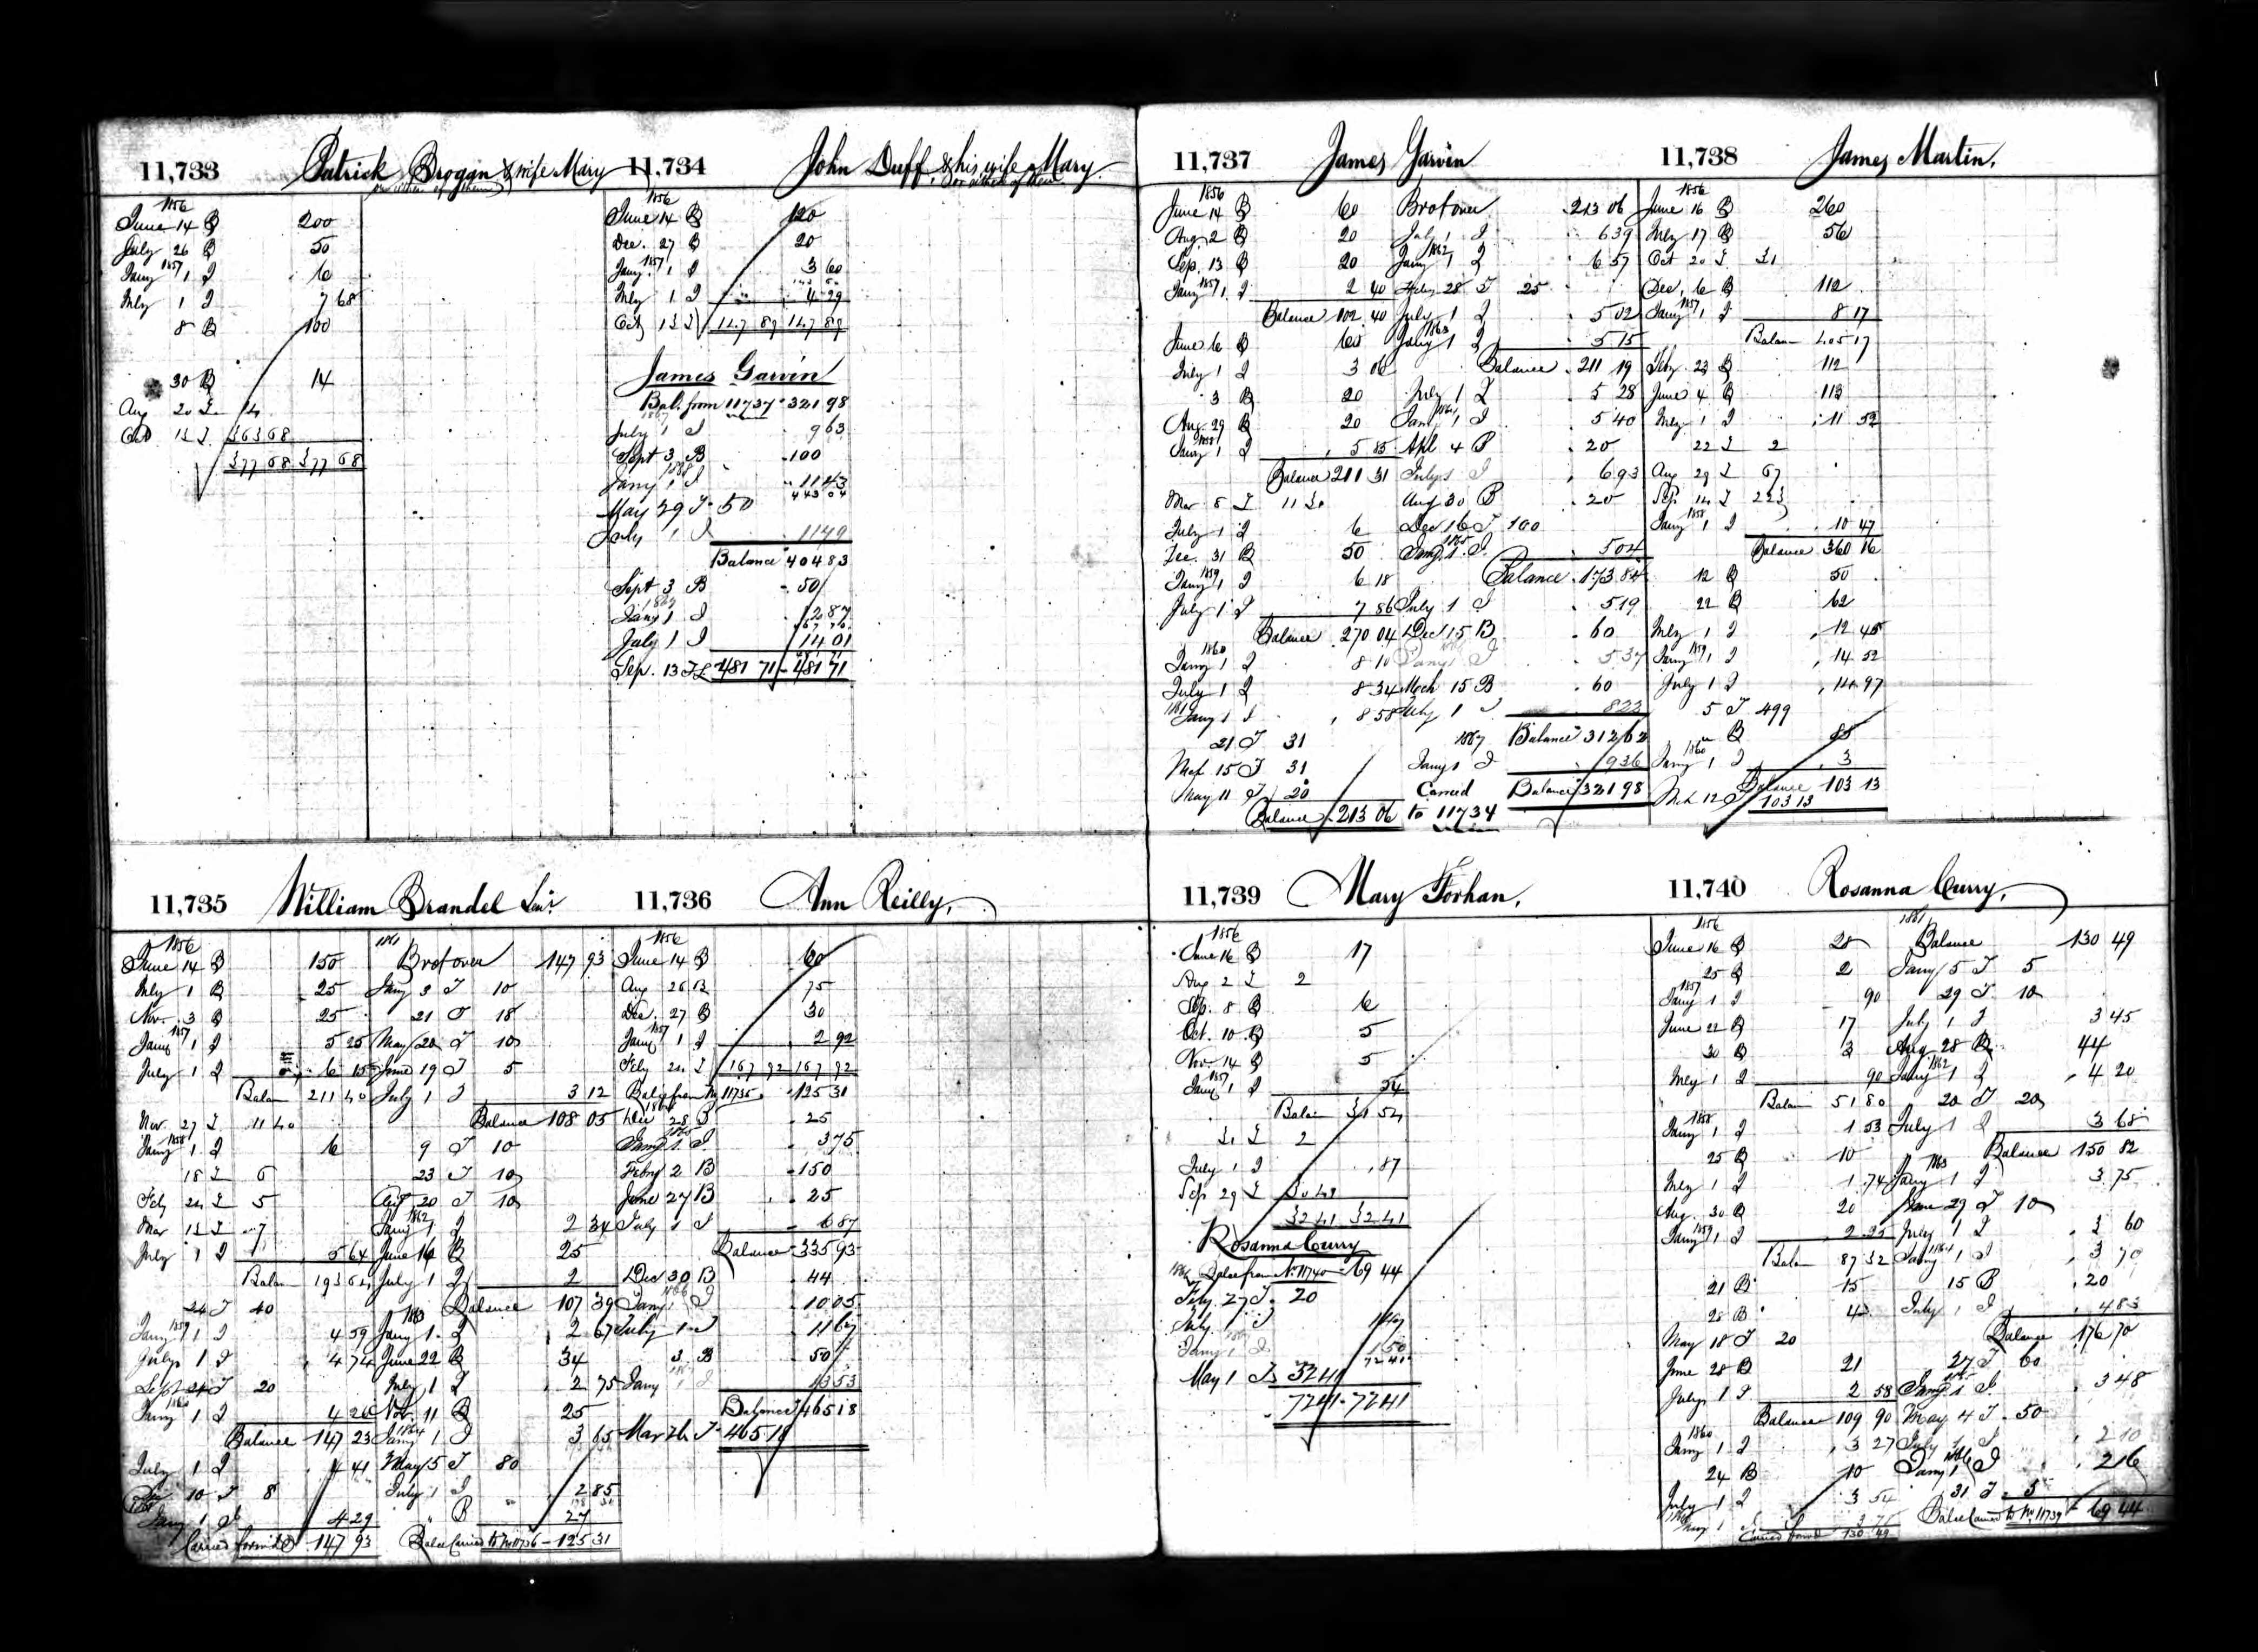 11,733 Patrick Brogan & wife Mary
or either of them
1856
June 14 B 200
July 26 B 50
1857
Jany 1 I 6
July 1 I 7 68
8 B 100
30 B 14
Aug 20 T 14
Oct 13 T 363 68
377 68 377 68
11,734 John Duff, & his wife Mary
or either of them
1856
June 14 B 120
Dec. 27 B 20
1857
Jany 1 I 3 60
July 1 I 4 29
Oct 13 T 147 89 147 89
James Garvin
Bal. from 11737 - 321 98
1867
July 1 I 9 63
Sept 3 B 100
1868
Jany 1 I 11 43
443 04
May 29 T 50
July 1 I 11 79
Balance 404 83
Sept 3 B 50
1869
Jany 1 I 12 87
July 1 I 14 01
Sep. 13 T 481 71 - 481 71
11,735 William Brandel Senr.
1856
June 14 B 150
July 1 B 25
Nov. 3 B 25
1857
Jany 1 I 5 25
July 1 I 6 15
Balan 211 40
Nov. 27 T 11 40
1858
Jany 1 I 6
18 T 6
Feb 24 T 5
Mar 13 T 7
July 1 I 5 64
Balan 193 64
24 T 40
1859
Jany 1 I 4 59
July 1 I 4 74
Sept 21 T 20
1860
Jany 1 I 4 26
Balance 147 23
July 1 I 4 41
10 T 8
Jany 1 I 4 29
Carried forward 147 93
1861
Brot over 147 93
Jany 3 T 10
21 T 18
May 20 T 10
June 19 T 5
July 1 I 3 12
Balance 108 05
9 T 10
23 T 10
Aug 20 T 10
1862
Jany 1 I 2 34
June 16 B 25
July 1 I 2
Balance 107 39
1863
Jany 1 I 2 67
June 22 B 34
July 1 I 2 75
Nov. 11 B 25
1864
Jany 1 I 3 65
May 5 T 80
July 1 I 2 85
" B 27
Balce Carried to No 11736 - 125 31
11,736 Ann Reilly,
1856
June 14 B 60
Aug 26 B 75
Dec. 27 B 30
1857
Jany 1 I 2 92
Feby 24 T 167 92 167 92
Balce from No 11735 125 31
1864
Dec 28 B 25
1865
Jany 1 I 3 75
Feby 2 B 150
June 27 B 25
July 1 I 6 87
Balance 335 93
Dec 30 B 44
1866
Jany 1 I 10 05
July 1 I 11 67
3 B 50
Jany 1 I 13 53
Balance 465 18
Mar 26 T 465 18
11,737 James Garvin
1856
June 14 B 60
Aug 2 B 20
Sep. 13 B 20
1857
Jany 1 I 2 40
Balance 102 40
June 6 B 60
July 1 I 3 06
3 B 20
Aug. 29 B 20
1858
Jany 1 I 5 85
Balance 211 31
Mar 8 T 11 31
July 1 I 6
Dec. 31 B 50
1859
Jany 1 I 6 18
July 1 I 7 86
Balance 270 04
1860
Jany 1 I 8 10
July 1 I 8 34
1861
Jany 1 I 8 58
21 T 31
Mch 15 T 31
May 11 T 20
Balance 213 06
Brot over 213 06
July 1 I 6 39
1862
Jany 1 I 6 57
28 T 25
July 1 I 5 02
1863
Jany 1 I 5 15
Balance 211 19
July 1 I 5 28
1864
Jany 1 I 5 40
Apl 4 B 20
July 1 I 6 93
Aug 30 B 20
Dec 16 T 100
1865
Jany 1 I 5 04
Balance 173 84
July 1 I 5 19
Dec 15 B 60
Jany 1 I 5 37
Mch 15 B 60
July 1 I 8 22
1867 Balance 312 62
Jany 1 I 9 36
Carried Balance 321 98
to 11734
11,738 James Martin,
1856
June 16 B 260
July 17 B 56
Oct 20 T 31
Dec. 6 B 112
1857
Jany 1 I 8 17
Balan 405 17
Feby. 23 B 112
June 4 B 113
July 1 I 11 52
22 T 2
Aug 29 T 67
Sep. 14 T 223
1858
Jany 1 I 10 47
Balance 360 16
12 B 50
22 B 62
July 1 I 12 45
1859
Jany 1 I 14 52
July 1 I 14 97
5 T 499
" B 85
1860
Jany 1 I 3
Balance 103 13
Mch 12 T 103 13
11,739 Mary Forhan,
1856
June 16 B 17
Aug 2 T 2
Sep. 8 B 6
Oct. 10 B 5
Nov. 14 B 5
1857
Jany 1 I 54
Balan 31 54
T 2
July 1 I 87
Sep 29 T 30 41
32 41 32 41
Rosanna Curry
1866 Balce from No 11740 - 69 44
Feby. 27 T 20
July 1 I 1 47
Jany 1 I 1 50
72 41
May 1 T 52 41
72 41 - 72 41
11,740 Rosanna Curry,
1856
June 16 B 28
25 B 2
1857
Jany 1 I 90
June 22 B 17
30 B 3
July 1 I 90
Balan 51 80
1858
Jany 1 I 1 53
25 B 10
July 1 I 1 74
Aug. 30 B 20
1859
Jany 1 I 2 25
Balan 87 32
21 B 15
28 B 4
May 18 T 20
June 28 B 21
July 1 I 2 58
Balance 109 90
1860
Jany 1 I 3 27
24 B 10
July 1 I 3 54
Jany 1 I 3 78
Carried forward 130 49
1861
Balance 130 49
Jany 5 T 5
29 T 10
July 1 I 3 45
Aug. 28 B 44
1862
Jany 1 I 4 20
20 T 20
July 1 I 3 68
Balance 150 82
1863
Jany 1 I 3 75
June 29 T 10
July 1 I 3 60
1864
Jany 1 I 3 70
15 B 20
July 1 I 4 83
Balance 176 70
27 T 60
1865
Jany 1 I 3 48
May 4 T 50
July 1 I 2 10
1866
Jany 1 I 2 16
31 T 5
Balce Carried to No 11739 - 69 44